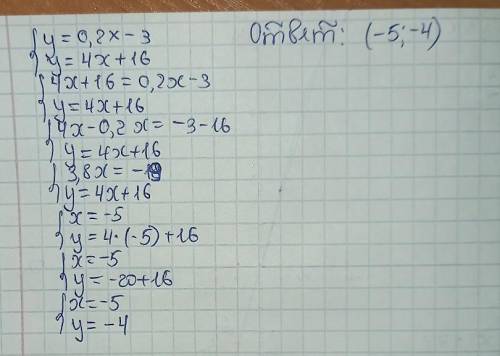 y = 0,2x - 3
y = 4x + 16
4x + 16 = 0,2x - 3
y = 4x + 16
4x - 0,2x = -3 - 16
y = 4x + 16
3,8x = -19
y = 4x + 16
x = -5
y = 4 · (-5) + 16
x = -5
y = -20 + 16
x = -5
y = -4
Ответ: (-5; -4)